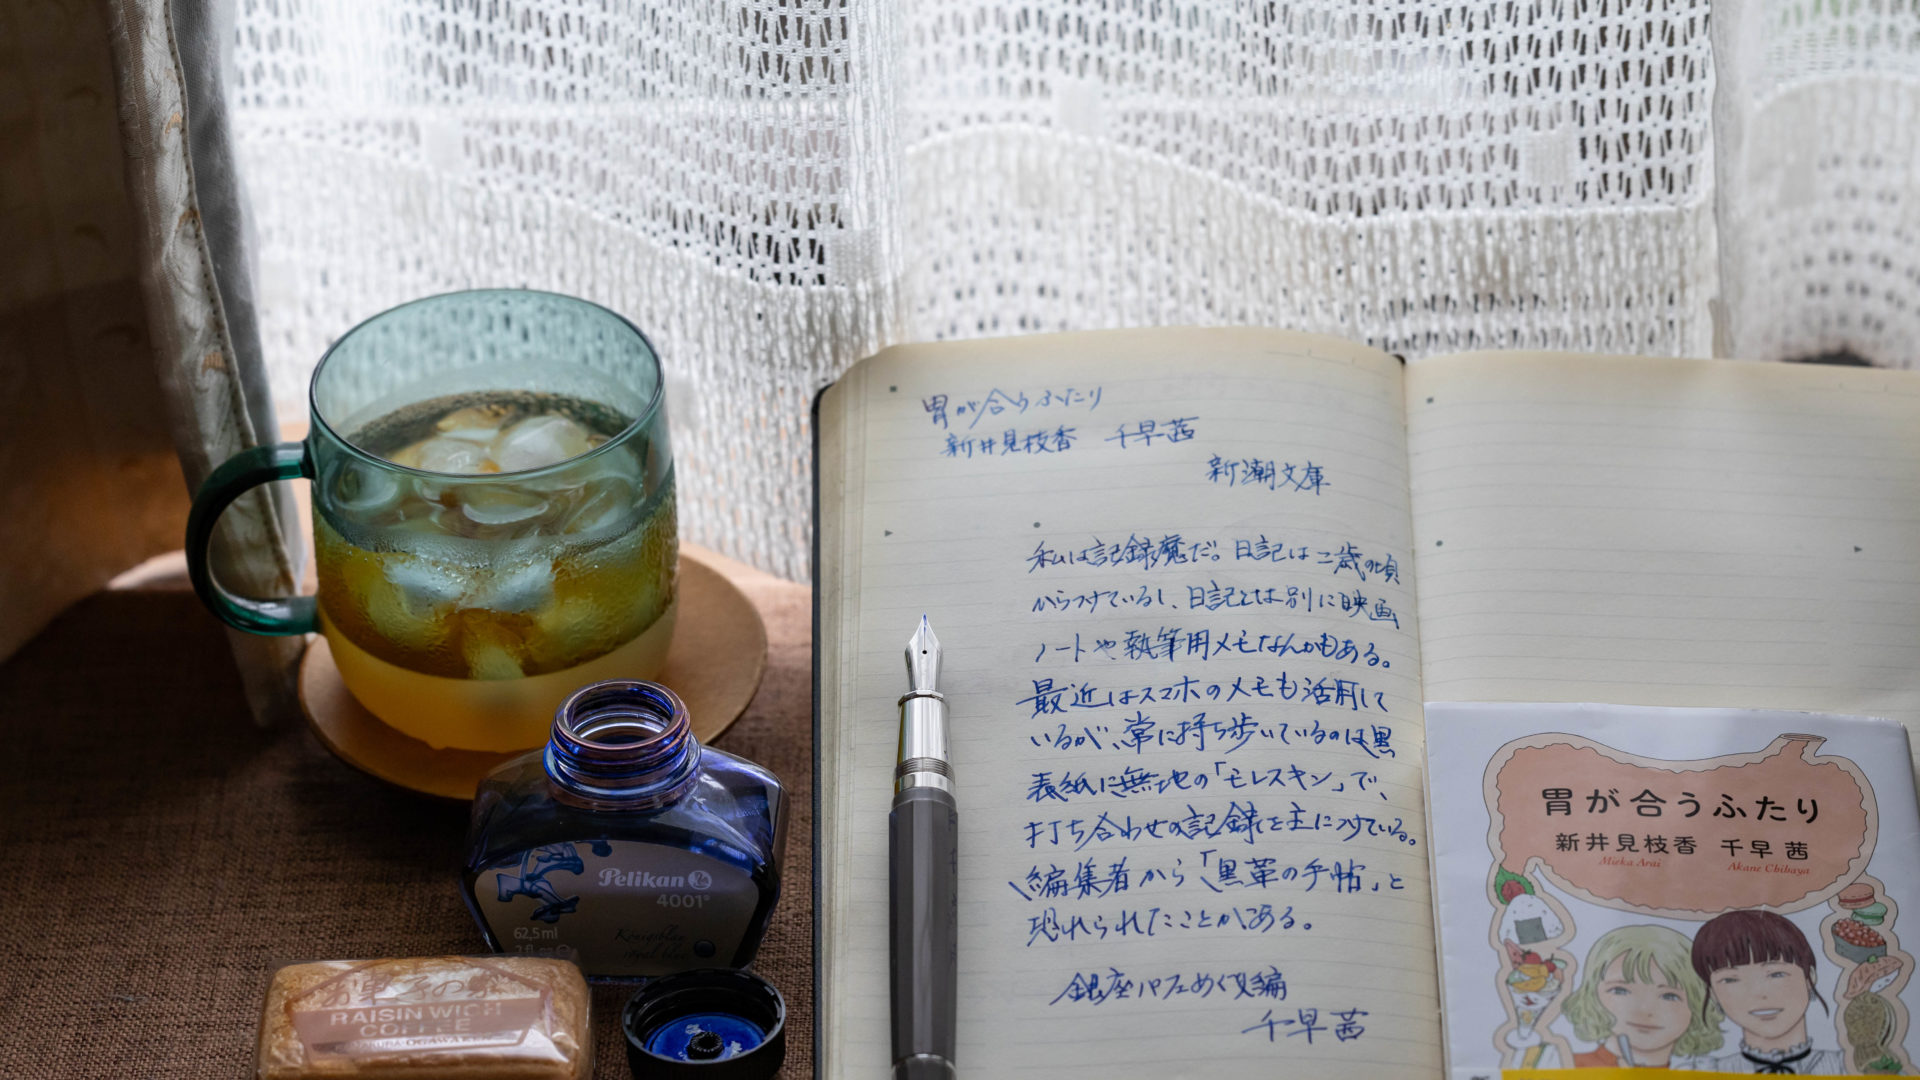 胃が合うふたり
新井見枝香 千早茜
新潮文庫
私は記録魔だ。日記は二歳の頃
からつけているし、日記とは別に映画
ノートや執筆用メモなんかもある。
最近はスマホのメモも活用して
いるが、常に持ち歩いているのは黒
表紙に無地の「モレスキン」で、
打ち合わせの記録を主につけている。
編集者から「黒革の手帖」と
恐れられたことがある。
銀座パフェめぐり編
千早茜
胃が合うふたり
新井見枝香 千早茜
Mieka Arai Akane Chihaya
Pelikan
4001®
62,5 ml
2 fl. oz
Königsblau
royal blue
お菓子の家
RAISIN WICH
COFFEE
KAMAKURA OGAWAKEN